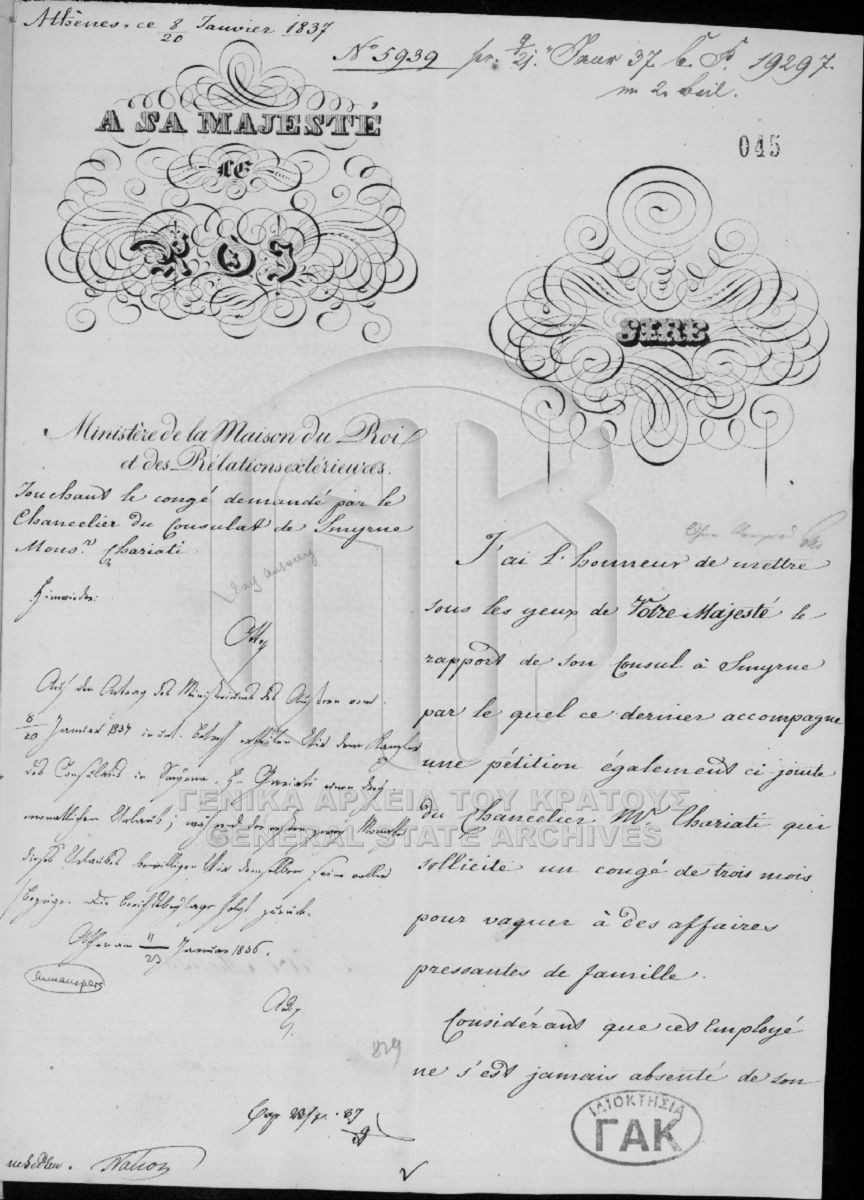 Athènes, ce 8/20 Janvier 1837
No 5939
pr. 9/21. Jaar 37. 19297.
m 2. beil.
045
A SA MAJESTÉ
LE
ROI
SIRE
Ministère de la Maison du Roi
et des Rélations extérieures.
Touchant le congé demandé par le
Chancelier du Consulat de Smyrne
Monsr. Chariati
Otto
Auf den Antrag des Ministeriums des Aeußern vom
8/20 Januar 1837 Betreff ertheilen Wir dem Kanzler
des Consulats in Smyrna, H. Chariati einen drei
monatlichen Urlaub; während der ersten zwei Monate
dieses Urlaubes bewilligen Wir demselben seine volle
Bezüge. Die Berichtsbeylagen folgt zurück.
Athen am 11/23 Januar 1836.
829
J'ai l'honneur de mettre
sous les yeux de Votre Majesté le
rapport de son Consul à Smyrne
par le quel ce dernier accompagne
une pétition également ci jointe
du Chancelier Mr Chariati qui
sollicite un congé de trois mois
pour vaquer à des affaires
pressantes de famille.
Considérant que cet Employé
ne s'est jamais absenté de son
ΓΕΝΙΚΑ ΑΡΧΕΙΑ ΤΟΥ ΚΡΑΤΟΥΣ
GENERAL STATE ARCHIVES
ΙΔΙΟΚΤΗΣΙΑ
ΓΑΚ